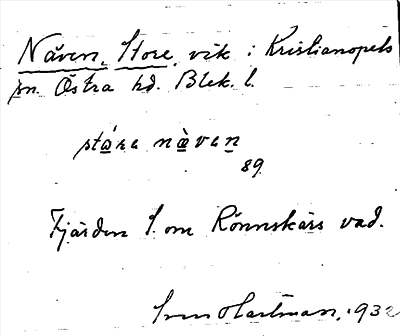 Näven, Store, vik i Kristianopels
sn. Östra hd. Blek. l.
stára nàvan
89.
Fjärden S. om Rönnskärs vad.
Sven Hartman, 1932